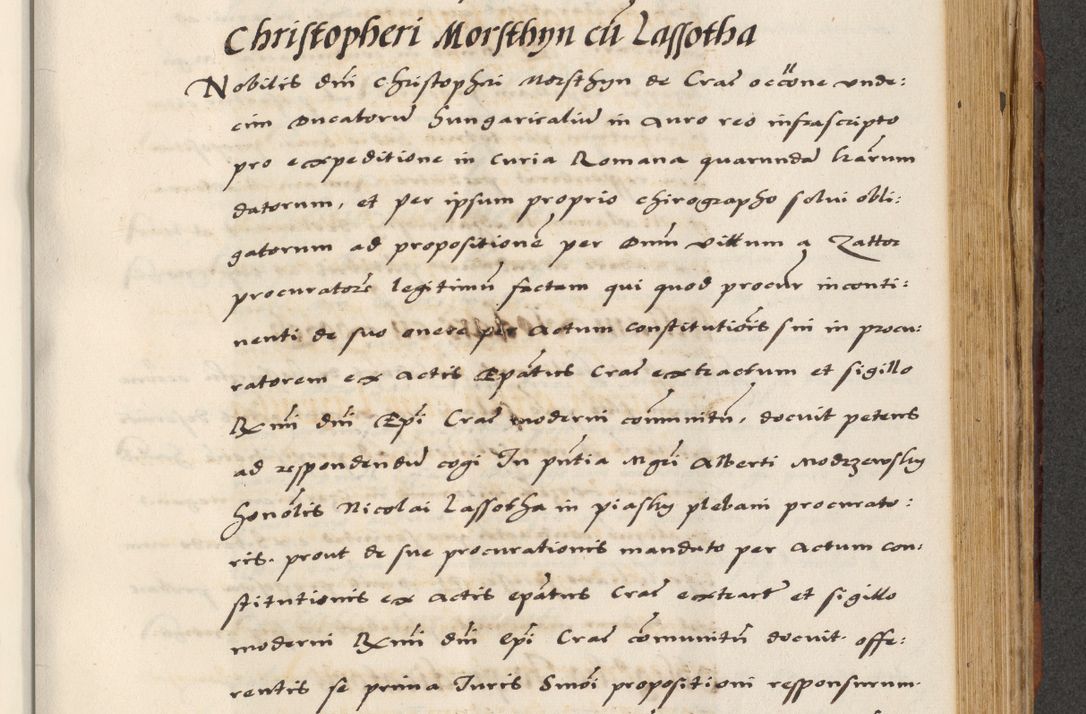 Christopheri Morsthyn cũ Lassotha
Nobilis dñi Christopheri Morsthyn de Crac̃ occõne vnde:
cim Ducatorũ hungaricaliũ in Auro reo infrascripto
pro expeditione in Curia Romana quarundã lrãrum
datorum, et per ipsum proprio chirographo solui obli:
gatorum ad propositionẽ per Dnũm vilkum a Zattor
procuratorẽ legitimũ factam qui quod procũr inconti:
nenti de suo onere per Actum constitutiõis sui in procu:
ratorem ex Actis Epãtus Crac̃ extractum et sigillo
Rx̃mi dñi Epĩ Crac̃ moderni cõmunitũ, docuit petens
ad respondendũ cogi In pñtia Mgr̃i Alberti Modrzewsky
honõlis Nicolai Lassotha in piasky plebani procurato:
ris. prout de sue procurationis mandato per Actum con:
stitutionis ex Actis epãtus Crac̃ extract̃ et sigillo
moderni Rx̃mi dñi Epĩ Crac̃ cõmunitũ docuit. offe:
rentis se prima Iuris Smõi propositioni responsurum.